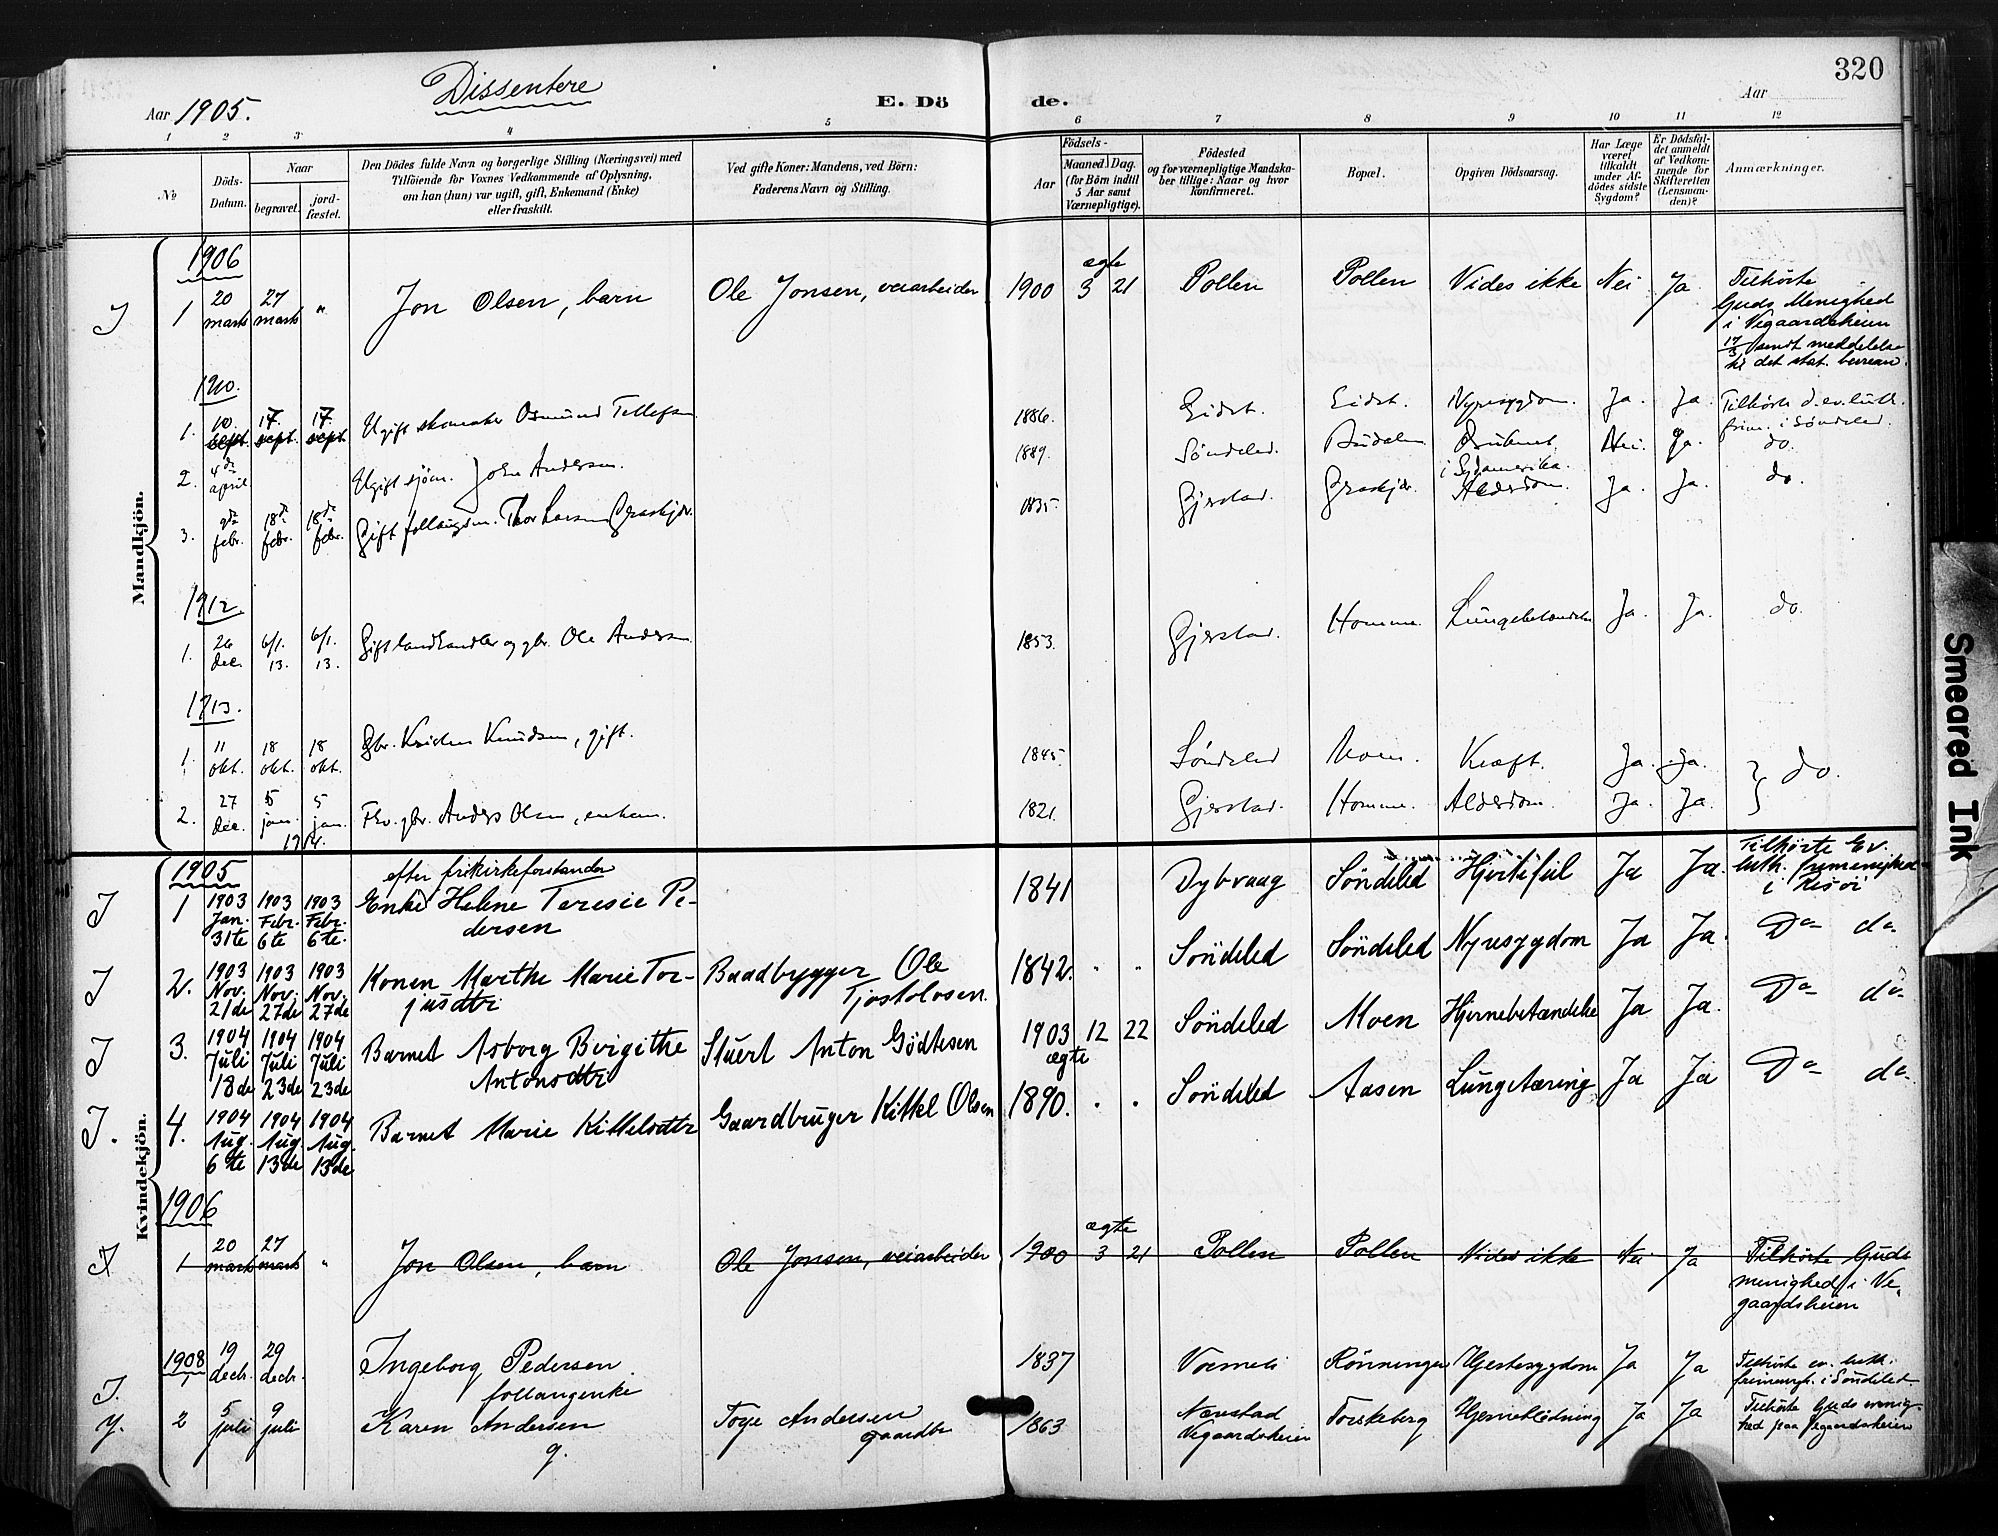 320
Dissentere
Aar 1905.
E. Döde.
Aar
1 2 3 4 5 6 7 8 9 10 11 12
No
Döds-Datum.
Naar
begravet.
jord-fæstet.
Den Dödes fulde Navn og borgerlige Stilling (Næringsvei) med
Tilföiende for Voxnes Vedkommende af Oplysning,
om han (hun) var ugift, gift, Enkemand (Enke)
eller fraskilt.
Ved gifte Koner: Mandens, ved Börn:
Faderens Navn og Stilling.
Födsels-
Aar
Maaned. Dag.
(for Börn indtil
5 Aar samt
Værnepligtige).
Födested
og for værnepligtige Mandska-
ber tillige: Naar og hvor
konfirmeret.
Bopæl.
Opgiven Dödsaarsag.
Har Læge
været
tilkaldt
under Af-
dödes sidste
Sygdom?
Er Dödsfal-
det anmeldt
af Vedkom-
mende for
Skifteretten
(Lensman-
den)?
Anmærkninger.
Mandkjön.
1906
I 1 20 marts 27 marts " Jon Olsen, barn Ole Jonsen, veiarbeider 1900 ægte 3 21 Pollen Pollen Vides ikke Nei Ja Tilhörte
Guds Menighed
i Vegaardsheien
17/3 sendt meddelelse
til det stat. bureau.
1910.
1. 10. sept. 17. sept. 17. sept. Ugift skomaker Osmund Tellefsen 1886. Eidet. Eidet. Nyresygdom. Ja. Ja. Tilhörte d. ev. luth.
frim. i Söndeled.
2. 4de april Ugift sjöm. John Andersen. 1889. Söndeled. Druknet i Sydamerika. Nei. Ja. do.
3. 9de febr. 18de febr. 18de febr. Gift follaugsm. Thor Larsen 1835. Gjerstad. Alderdom. Ja. Ja. do.
1912
1. 26 dec. 6/1. 13. 6/1. 13. Gift landhandler og gbr. Ole Andersen 1853. Gjerstad. Homme. Lungebetændelse Ja. Ja. do.
1913.
1. 11 okt. 18 okt. 18 okt. Gbr. Knudsen, gift. 1845. Söndeled Moen. Kræft. Ja. Ja. do.
2. 27 dec. 5 jan. 5 jan. 1914. Fhv. gbr. Anders Olsen, enkem. 1821. Gjerstad. Homme. Alderdom. Ja. Ja.
Kvindekjön.
1905
I 1 1903 Jan. 31te 1903 Febr. 6te 1903 Febr. 6te. efter frikirkeforstander
Enke Helene Teresie Pe-
dersen 1841 Dybvaag Söndeled Hjertefeil Ja Ja. Tilhörte Ev.
luth. frimenighed
i Risör
I 2. 1903 Nov. 21de 1903 Nov. 27de 1903 Nov. 27de Konen Marthe Marie Tor-
jusdtr Baadbygger Ole
Tjostolvsen. 1842. " " Söndeled Söndeled Nyresygdom Ja Ja. Do do
I 3. 1904 Juli 18de 1904 Juli 23de 1904 Juli 23de Barnet Asborg Birgithe
Antonsdtr Stuert Anton Gödtesen 1903 ægte 12 22 Söndeled Moen Hjernebetændelse Ja Ja. Do do
I. 4. 1904 Aug. 6te 1904 Aug 13de 1904 Aug. 13de Barnet Marie Kittelsdtr Gaardbruger Kittel Olsen 1890. " " Söndeled Aasen Lungetæring Ja Ja Do do
1906
I 1 20 marts 27 marts " Jon Olsen, barn Ole Jonsen, veiarbeider 1900 ægte 3 21 Pollen Pollen Vides ikke Nei Ja Tilhörte Guds
menighed i Ve-
gaardsheien
1908
I. 1 19 decb. 29 decb. Ingeborg Pedersen
follaugenke 1837 Rönningen Hjertesygdom Ja Ja Tilhörte ev. luth.
frimengh. i Söndeled
2 5 juli 9 juli Karen Andersen
g. Toye Andersen
gaardbr 1863 Nævstad
Vegaardsheien Torskeberg Hjerneblödning Ja Ja Tilhörte Guds menig-
hed paa Vegaardsheien
Smeared Ink